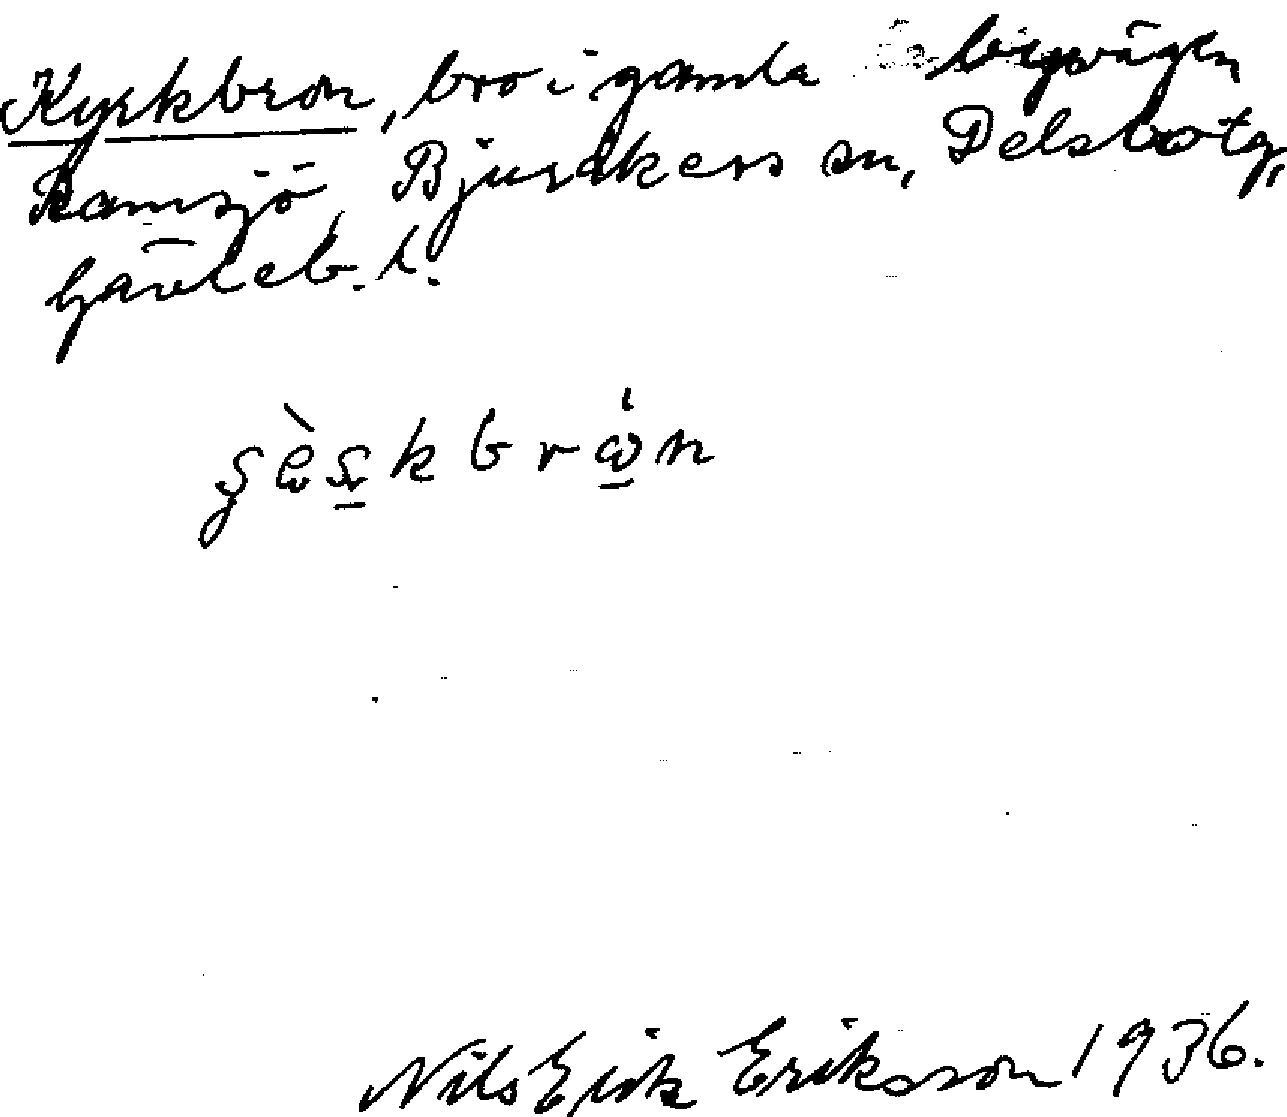 Kyrkbron, bro i gamla bygvägen,
Ramsjö, Bjuråkers sn, Delsbo tg,
Gävleb. l.
Nils Erik Eriksson 1936.